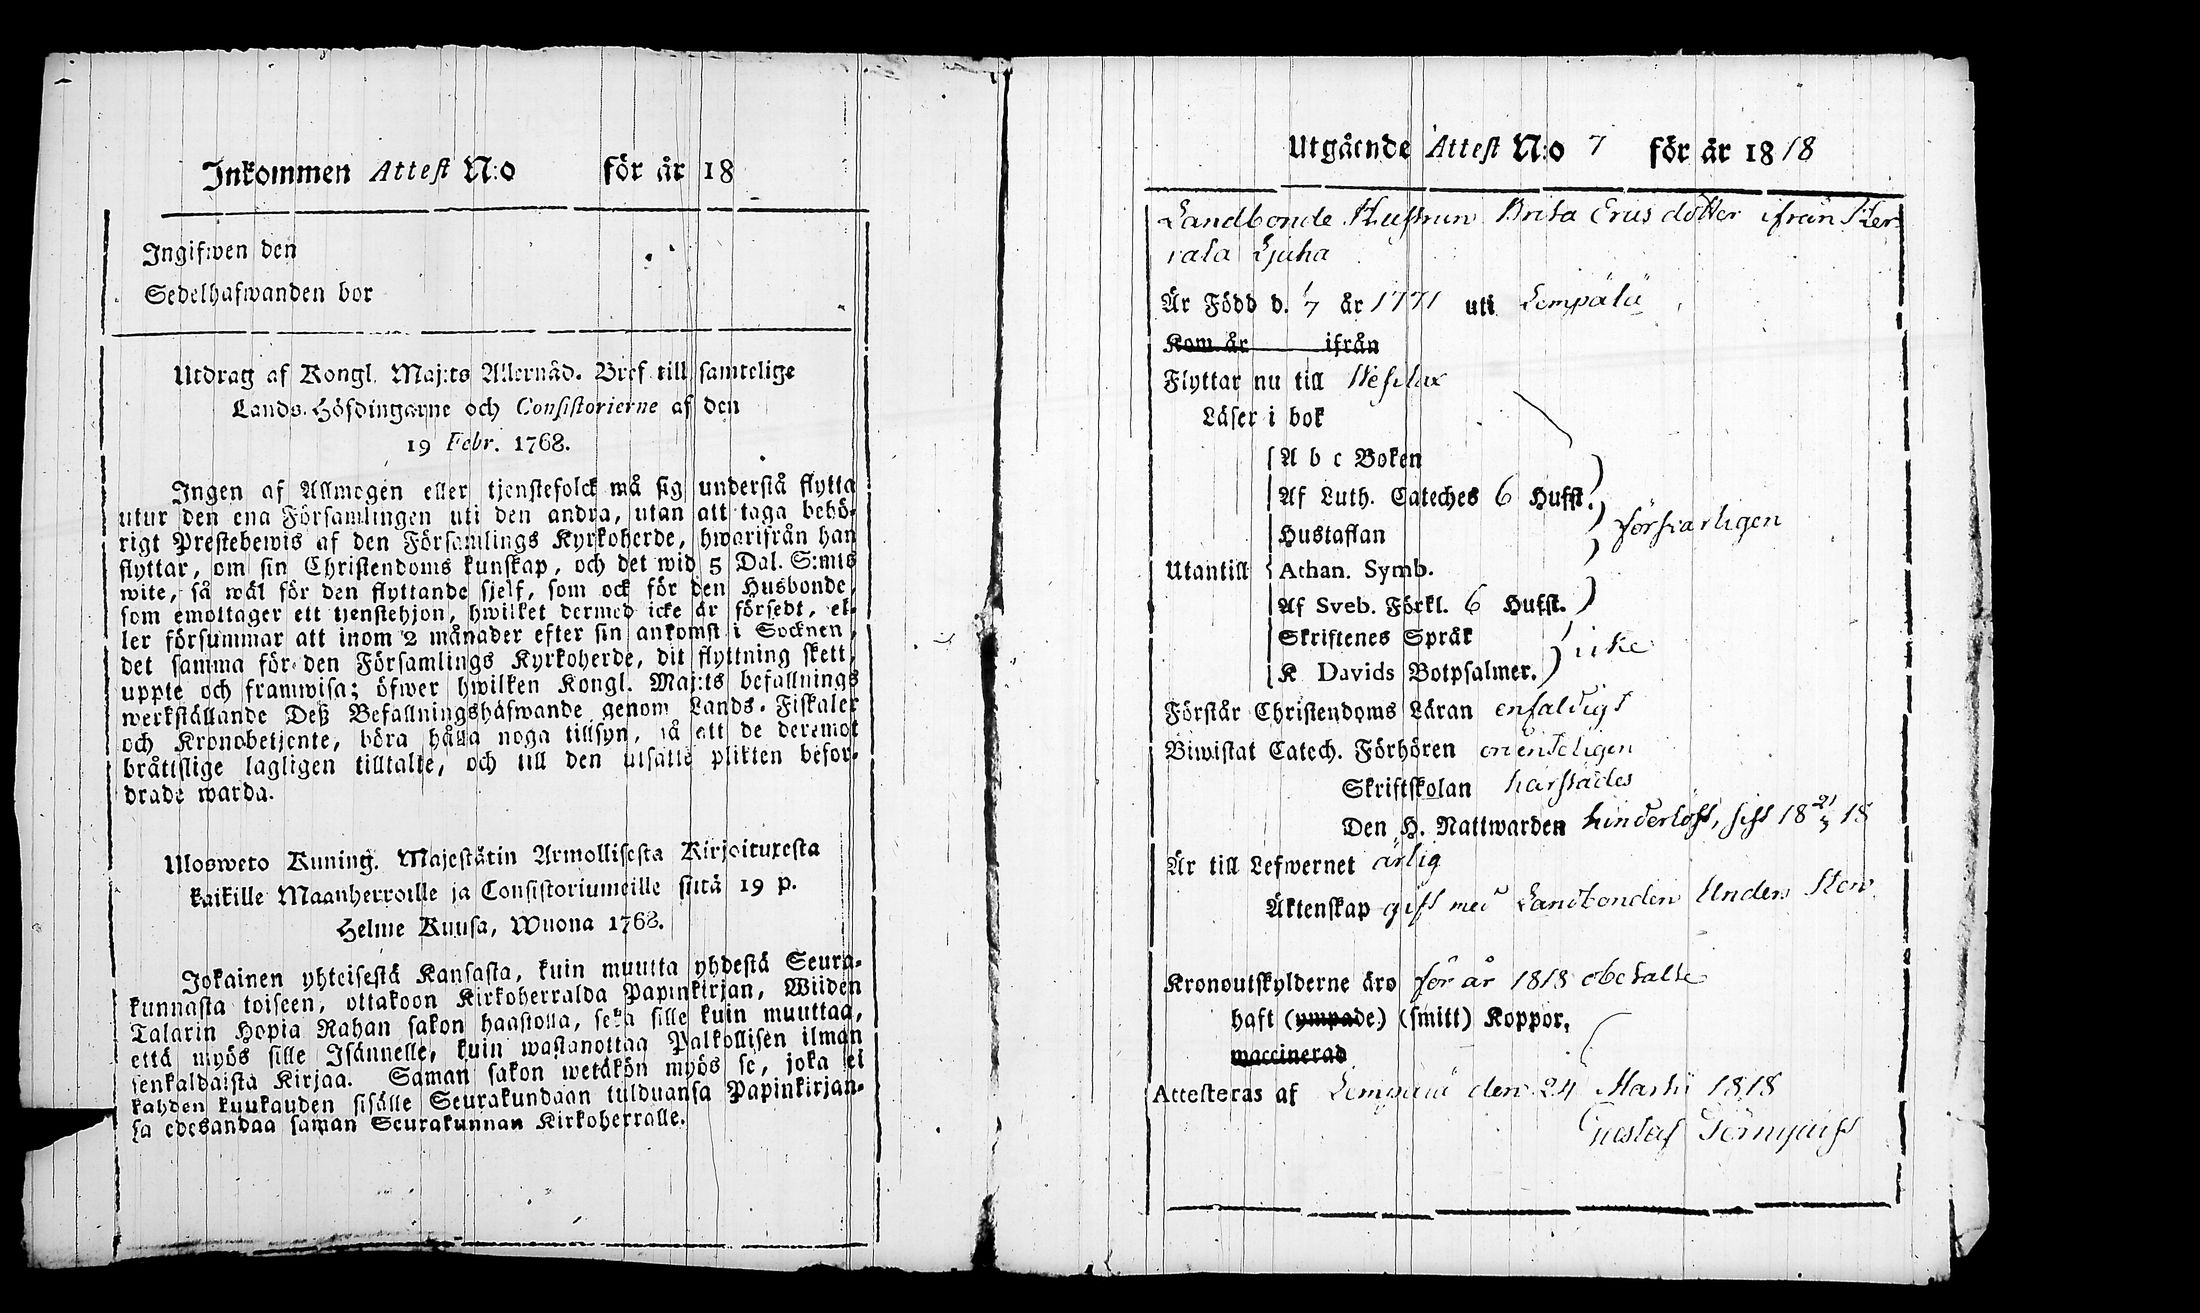 Inkommen Attest N:o för år 18
Ingifwen den
Sedelhafwanden bor
Utdrag af Kongl. Maj:ts Allernåd. Bref till samtelige
Lands-Höfdingarne och Consistorierne af den
19 Febr. 1768.
Ingen af Allmogen eller tjenstefolck må sig understå flytta
utur den ena Församlingen uti den andra, utan att taga behö-
rigt Prestebewis af den Församlings Kyrkoherde, hwarifrån han
flyttar, om sin Christendoms kunskap, och det wid 5 Dal. S:mts
wite, så wäl för den flyttande sjelf, som ock för den Husbonde,
som emottager ett tjenstehjon, hwilket dermed icke är försedt, el-
ler försummar att inom 2 månader efter sin ankomst i Socknen,
det samma för den Församlings Kyrkoherde, dit flyttning skett,
uppte och framwisa; öfwer hwilken Kongl. Maj:ts befallnings
werkställande Deß Befallningshäfwande genom Lands-Fiskaler
och Kronobetjente, böra hålla noga tillsyn, så att de deremot
bråttslige lagligen tilltalte, och till den utsatte plikten befor-
drade warda.
Ulosweto Kuning. Majestätin Armollisesta Kirjoituxesta
kaikille Maanherroille ja Consistoriumeille siitä 19 p.
Helme Kuusa, Wuona 1768.
Jokainen yhteisestä Kansasta, kuin muutta yhdestä Seura-
kunnasta toiseen, ottakoon Kirkoherralda Papinkirjan, Wiiden
Talarin Hopia Rahan sakon haastolla, sekä sille kuin muuttaa,
että myös sille Isännelle, kuin wastanottaa Palkollisen ilman
senkaldaista Kirjaa. Saman sakon wetäkön myös se, joka ei
kahden kuukauden sisälle Seurakundaan tulduansa Papinkirjan-
sa edesandaa saman Seurakunnan Kirkoherralle.
Utgående Attest N:o 7 för år 1818
Landbonde Hustrun Brita Ericsdotter ifrån Her-
rala Ljuha
Är Född d. 7 år 1771 uti Lempälä
Kom år ifrån
Flyttar nu till Wesilax
Läser i bok
A b c Boken
Af Luth. Cateches 6 Hufst.
Hustaflan
försvarligen
Utantill Athan. Symb.
Af Sveb. Förkl. 6 Hufst.
Skriftenes Språk
icke
K Davids Botpsalmer.
Förstår Christendoms Läran enfaldigt
Biwistat Catech. Förhören ordenteligen
Skriftskolan härstädes
Den H. Nattwarden hinderlöst, sist 18 21/3 18
Är till Lefwernet ärlig
Äktenskap gift med Landbonden Anders Hen
Kronoutskylderne äro för år 1818 obetalte
haft (ympade) (smitt) Koppor,
waccinerad
Attesteras af Lempälä den 24 Martii 1818
Gustaf Törnquist